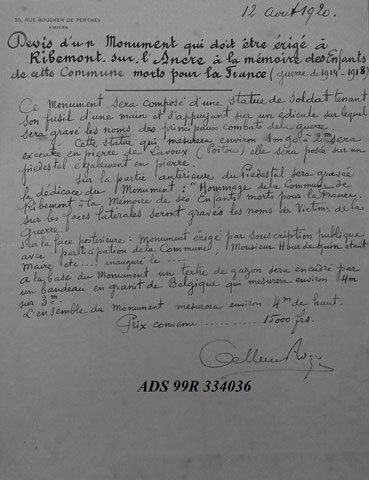 50, RUE BOUCHER DE PERTHES
AMIENS
12 août 1920.
Devis d'un Monument qui doit être érigé à
Ribemont sur l'Ancre à la mémoire des Enfants
de cette Commune morts pour la France (guerre de 1914-1918)
Ce Monument sera composé d'une statue de Soldat tenant
son fusil d'une main et s'appuyant sur un édicule sur lequel
sera gravé les noms des principaux combats de la guerre.
Cette statue qui mesurera environ 1m90 à 2m sera
exécutée en pierre de Lavoux (Poitou) elle sera posée sur un
piédestal également en pierre.
Sur la partie antérieure du Piédestal sera gravée
la dédicace du Monument : "Hommage de la Commune de
Ribemont à la Mémoire de ses Enfants morts pour la France,
sur les faces latérales seront gravés les noms de Victimes de la
guerre.
Sur la face postérieure : Monument érigé par souscription publique
avec participation de la Commune, Monsieur étant
Maire, etc.... inauguré le ....
à la base du Monument un tertre de gazon sera encadré par
un bandeau en granit de Belgique qui mesurera environ 4m
sur 3m.
L'ensemble du Monument mesurera environ 4m de haut.
Prix convenu .......... 15000 frs.
ADS 99R 334036